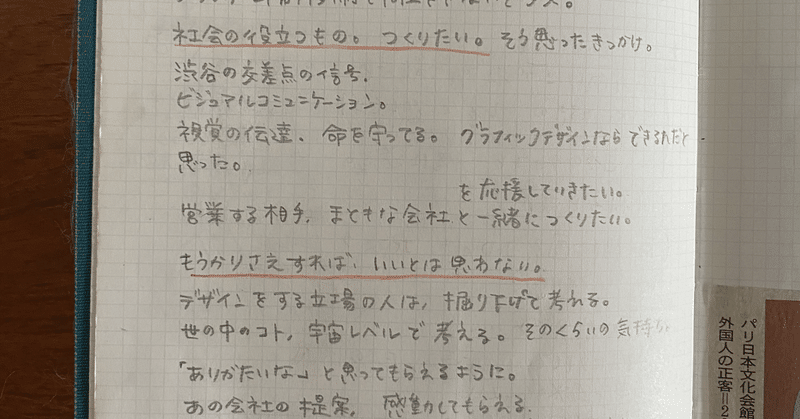 社会の役立つもの。つくりたい。そう思ったきっかけ。
渋谷の交差点の信号、
ビジュアルコミュニケーション。
視覚の伝達、命を守ってる。グラフィックデザインならできるんだと
思った。
を応援していきたい。
営業する相手、まともな会社と一緒につくりたい。
もうかりさえすれば、いいとは思わない。
デザインをする立場の人は、掘り下げて考れる。
世の中のコト、宇宙レベルで考える。そのくらいの気持ち。
「ありがたいな」と思ってもらえるように。
あの会社の提案、感動してもらえる
パリ日本文化会館
外国人の正客=2